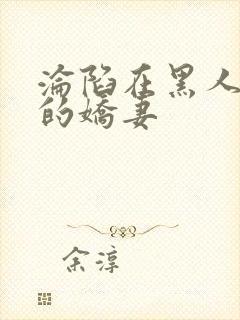 淪陷在黑人
的嬌妻
余淳